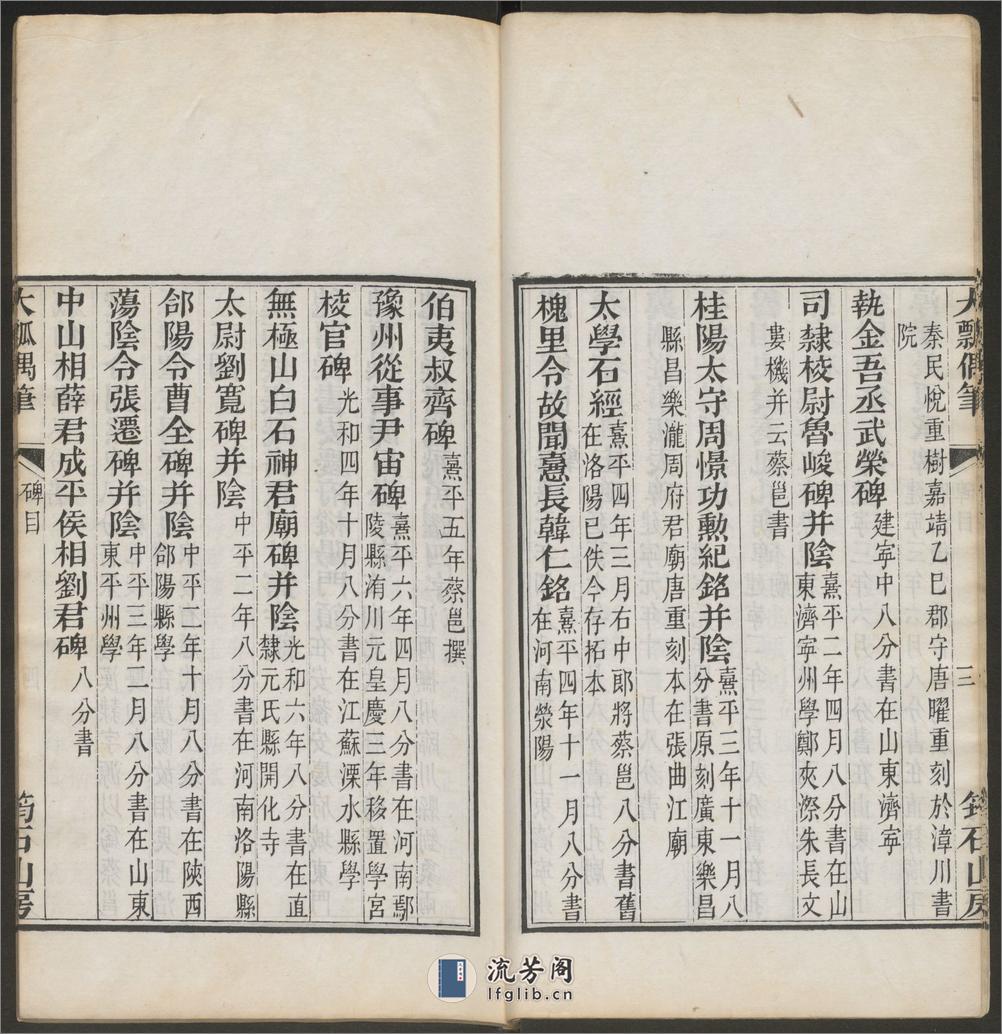 大瓢偶筆
三
石山房
秦民悅重樹嘉靖乙巳郡守唐曜重刻於漳川書
院
執金吾丞武榮碑 建寧中八分書在山東濟寧
司隸校尉魯峻碑并陰 熹平二年四月八分書在山
東濟寧州學鄭夾漈朱長文
婁機并云蔡邕書
桂陽太守周憬功勲紀銘并陰 熹平三年十一月八
分書原刻廣東樂昌
縣昌樂瀧周府君廟唐重刻本在張曲江廟
太學石經 熹平四年三月右中郎將蔡邕八分書舊
在洛陽已佚今存拓本
槐里令故聞憙長韓仁銘 熹平四年十一月八分書
在河南滎陽
伯夷叔齊碑 熹平五年蔡邕撰
豫州從事尹宙碑 熹平六年四月八分書在河南鄢
陵縣洧川元皇慶三年移置學宮
校官碑 光和四年十月八分書在江蘇溧水縣學
無極山白石神君廟碑并陰 光和六年八分書在直
隸元氏縣開化寺
太尉劉寬碑并陰 中平二年八分書在河南洛陽縣
郃陽令曹全碑并陰 中平二年十月八分書在陝西
郃陽縣學
蕩陰令張遷碑并陰 中平三年二月八分書在山東
東平州學
中山相薛君成平侯相劉君碑 八分書
大瓢偶筆
碑目
筠石山房
流芳阁
lfglib.cn